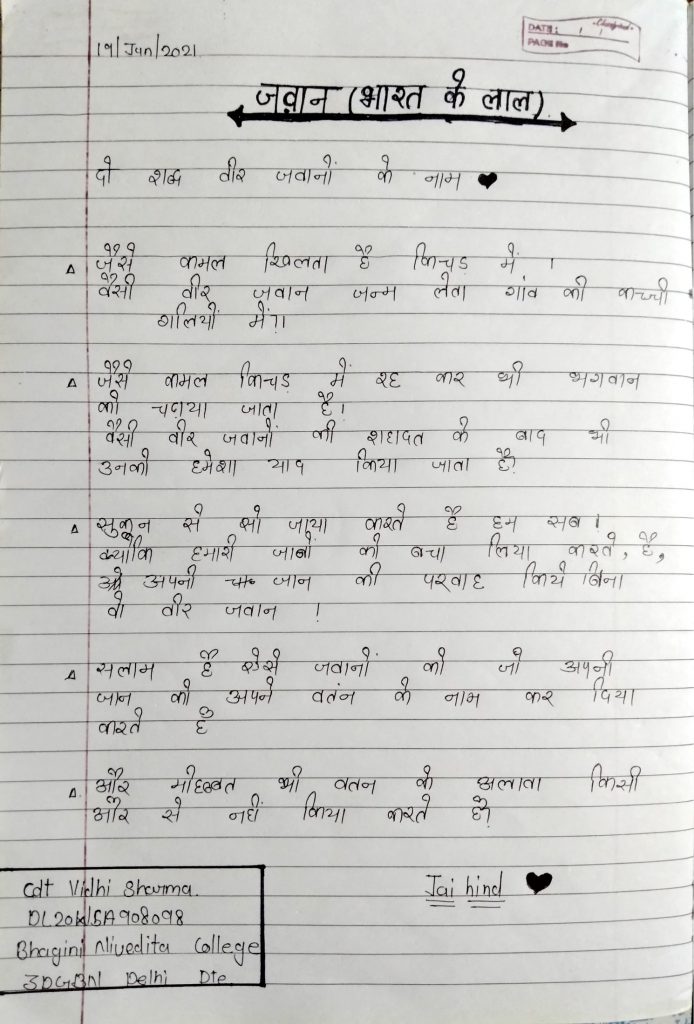 Classmate
DATE: / /
PAGE No
19/Jun/2021
जवान (भारत के लाल)
दो शब्द वीर जवानों के नाम
जैसे कमल खिलता है किचड़ में ।
वैसी वीर जवान जन्म लेता गांव की कच्ची
गलियों में ?।
जैसे कमल किचड़ में रह कर भी भगवान
को चढ़ाया जाता है।
वैसी वीर जवानों की शहादत के बाद भी
उनको हमेशा याद किया जाता है?
सुकून से सो जाया करते है हम सब ।
क्योंकि हमारी जानों को बचा लिया करते, है,
अपनी जान की परवाह किये बिना
वो वीर जवान ।
सलाम है ऐसे जवानों को जो अपनी
जान को अपने वतन के नाम कर दिया
करते है
और मोहब्बत भी वतन के अलावा किसी
और से नहीं किया करते है?
Jai hind
Cdt Vidhi Sharma.
Bhagini Nivedita College
3DGBN Delhi Dte.